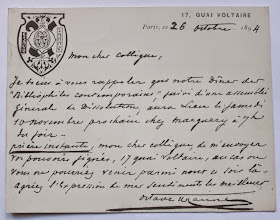 17, QUAI VOLTAIRE
Paris, ce 26 octobre 1894
mon cher collègue,
Je tiens à vous rappeler que notre dîner des
"Bibliophiles contemporains" suivi d'une assemblée
Générale de Dissolution aura lieu le samedi
10 novembre prochain chez marguery à 7h
du soir -
prière instante, mon cher collègue, de m'envoyer
vos pouvoirs signés, 17 quai Voltaire, au cas où
vous ne pourriez venir parmi nous ce soir là
agréez l'Expression de mes sentiments les meilleurs
octave uzanne